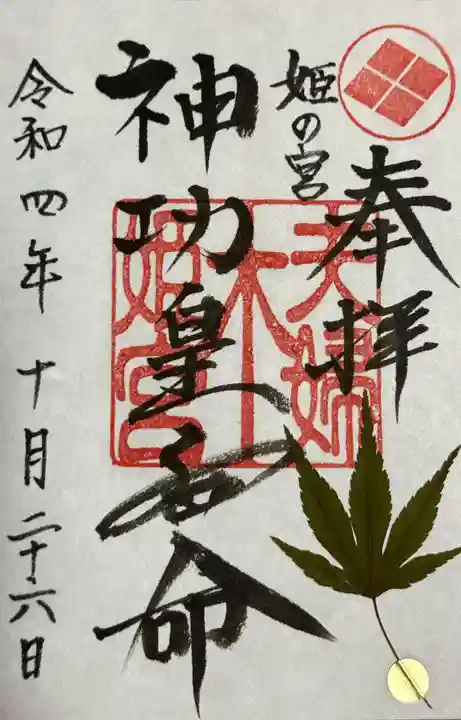 奉拝
姫の宮
神功皇后命
夫婦
木
姫宮
令和四年十月二十六日